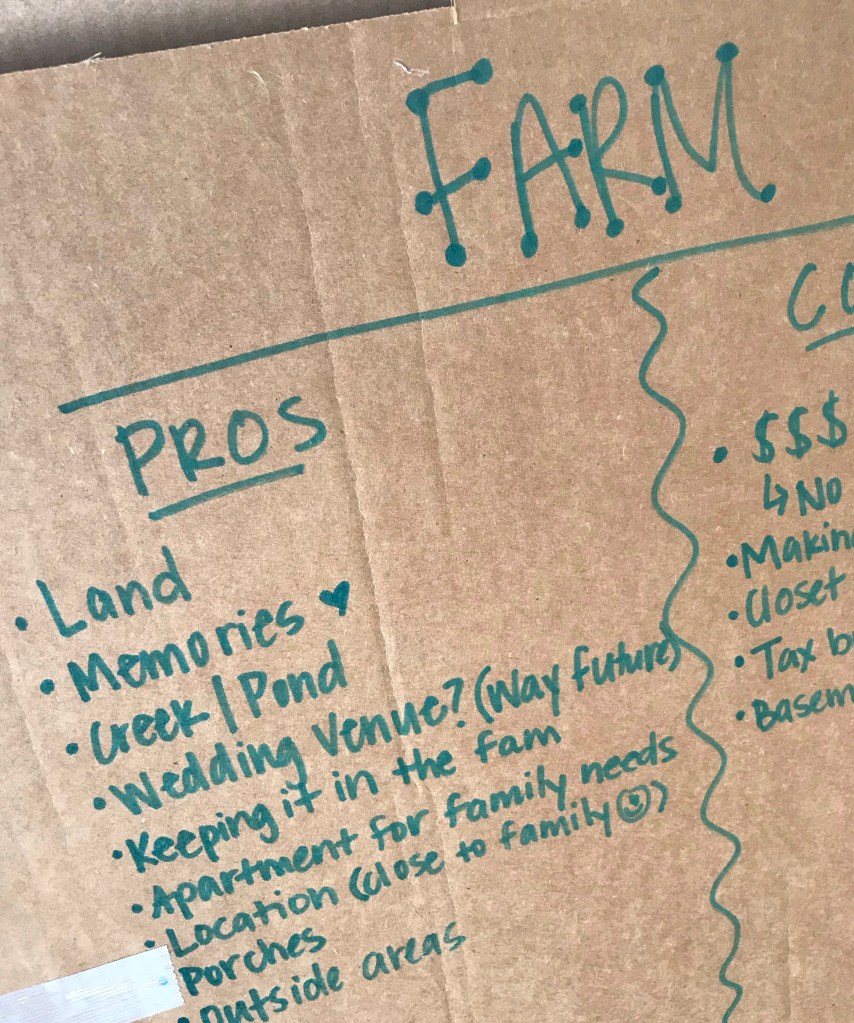 FARM
PROS
• Land
• Memories ♥
• Creek | Pond
• Wedding Venue? (Way future)
• Keeping it in the fam
• Apartment for family needs
• Location (close to family ☺)
• Porches
• Outside areas
• $$$
↳ No
• Closet
• Tax